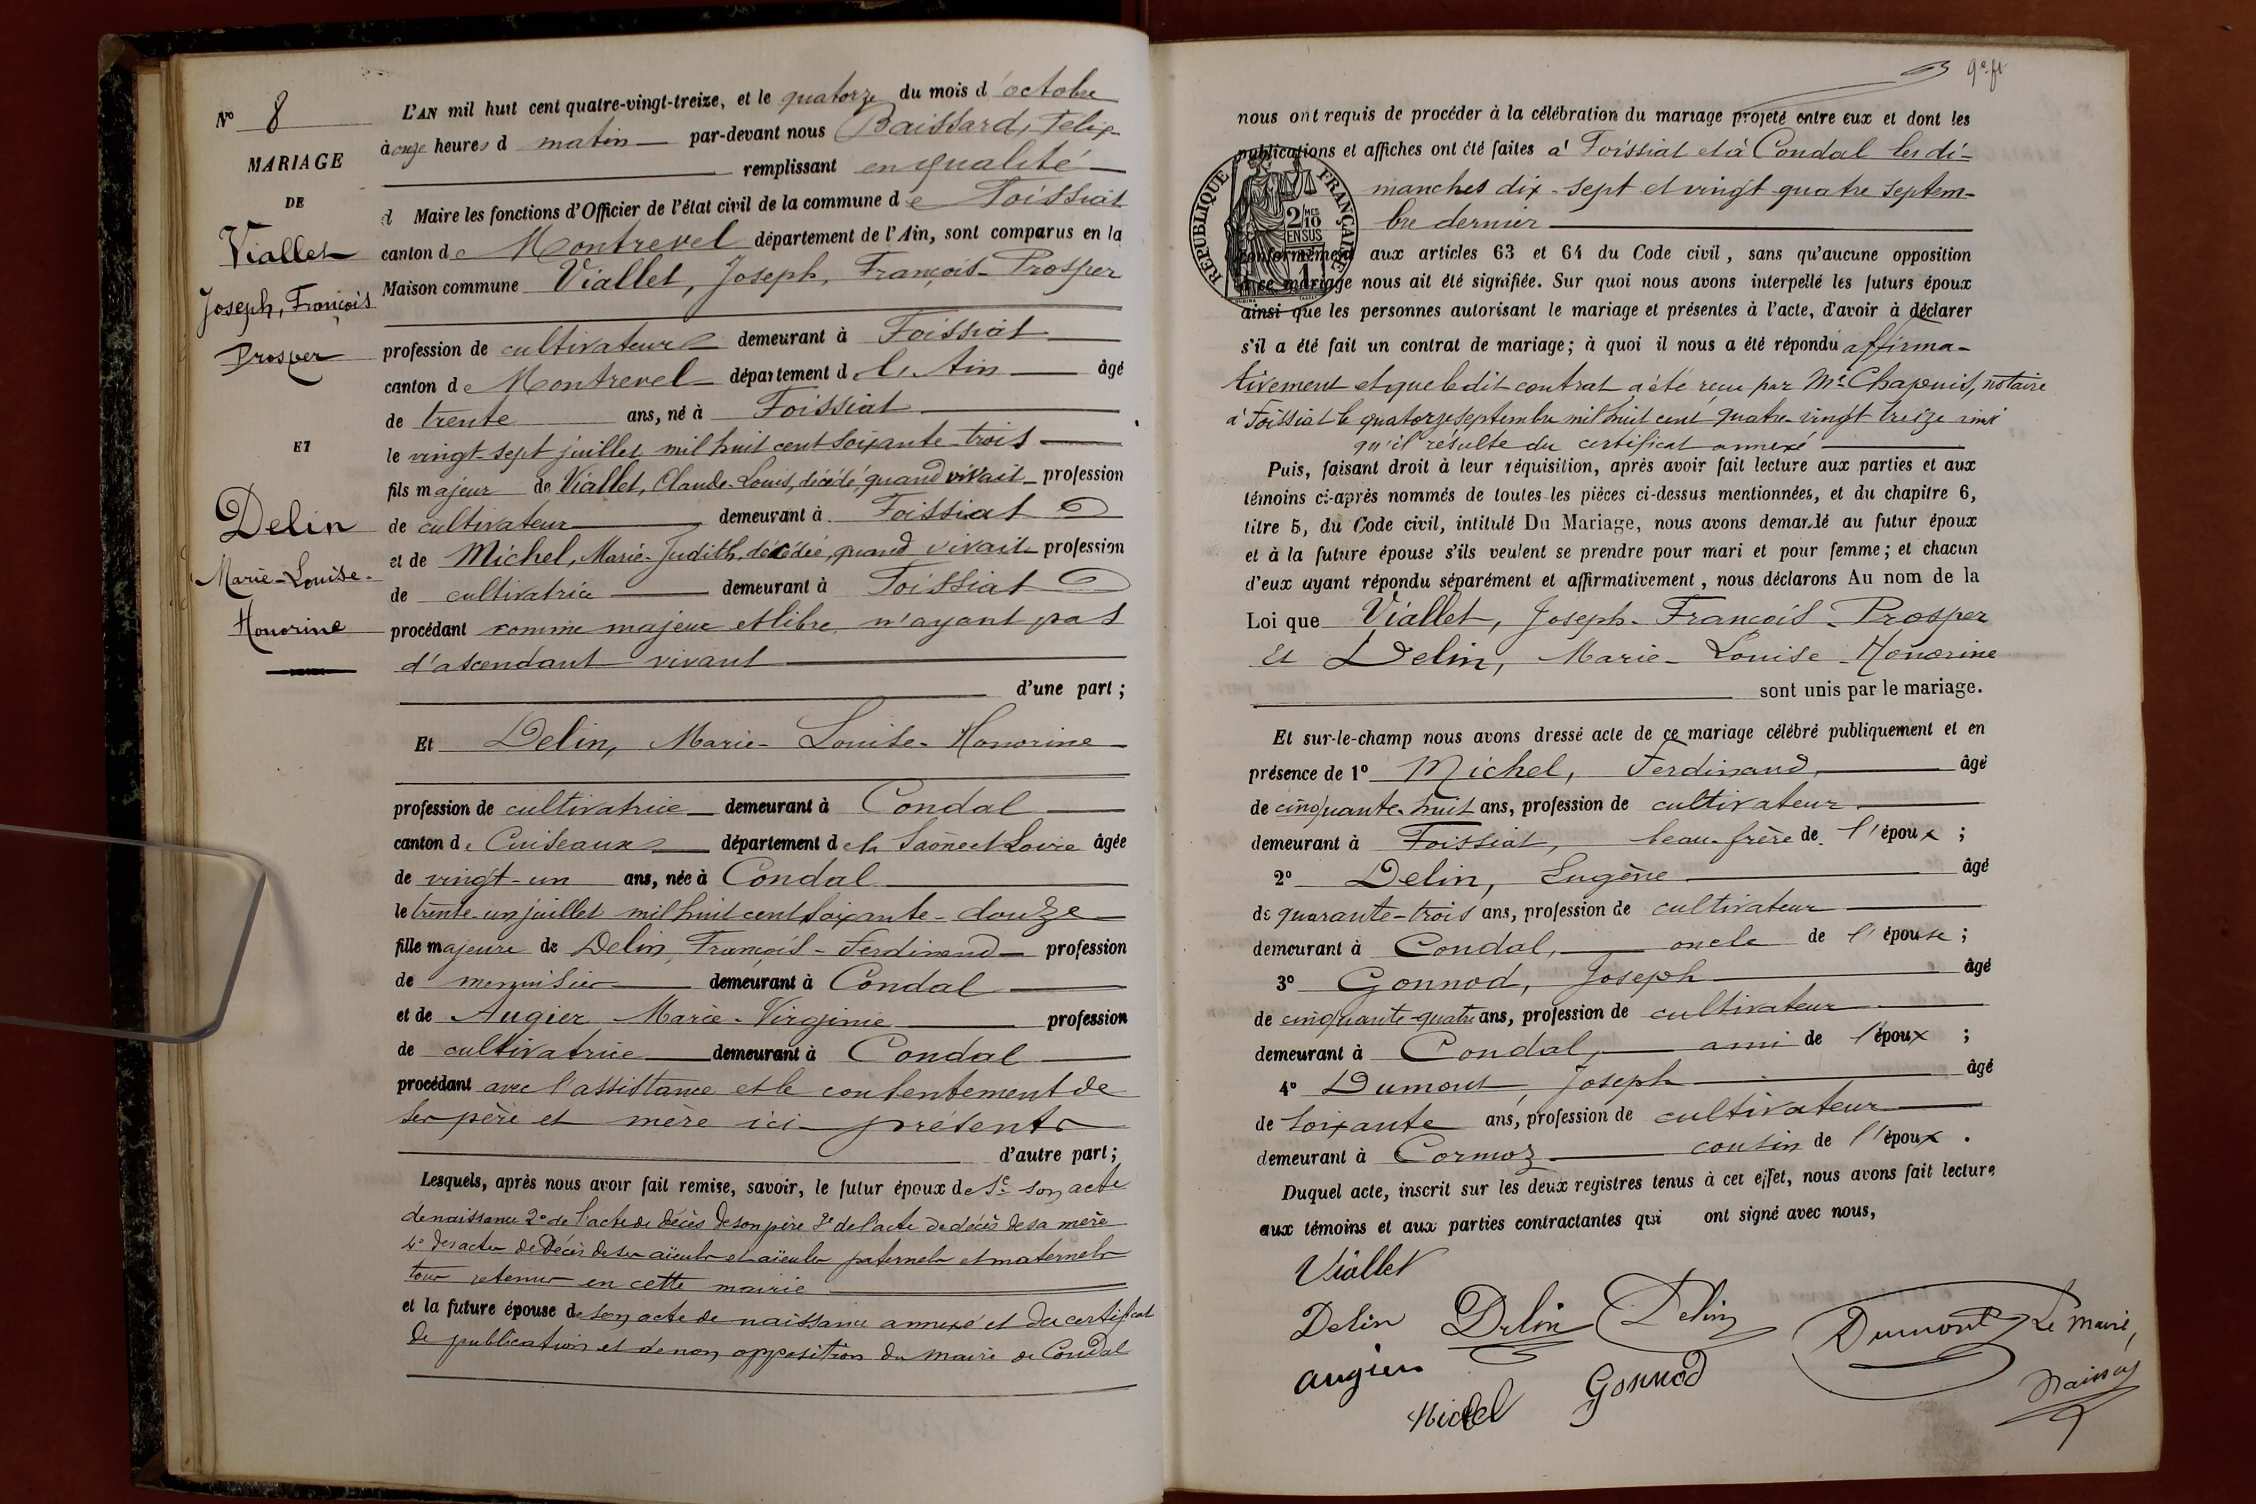 Nº 8
MARIAGE
DE
Viallet
Joseph, François
Prosper
ET
Delin
Marie-Louise-
Honorine
L'AN mil huit cent quatre-vingt-treize, et le quatorze du mois d'octobre
à onze heures d matin par-devant nous Baissard, Félix
remplissant en qualité
d Maire les fonctions d'Officier de l'état civil de la commune de Foissiat
canton de Montrevel département de l'Ain, sont comparus en la
Maison commune Viallet, Joseph, François-Prosper
profession de cultivateur demeurant à Foissiat
canton de Montrevel département de l'Ain âgé
de trente ans, né à Foissiat
le vingt-sept juillet mil huit cent soixante-trois
fils majeur de Viallet, Claude-Louis, décédé, quand vivait profession
de cultivateur demeurant à Foissiat
et de Michel, Marie-Judith, décédée, quand vivait profession
de cultivatrice demeurant à Foissiat
procédant comme majeur et libre n'ayant pas
d'ascendant vivant
d'une part ;
Et Delin, Marie-Louise-Honorine
profession de cultivatrice demeurant à Condal
canton de Cuiseaux département de Saône et Loire âgée
de vingt-un ans, née à Condal
le trente-un juillet mil huit cent soixante-douze
fille majeure de Delin, François-Ferdinand profession
de menuisier demeurant à Condal
et de Augier Marie-Virginie profession
de cultivatrice demeurant à Condal
procédant avec l'assistance et le contentement de
ses père et mère ici présents
d'autre part ;
Lesquels, après nous avoir fait remise, savoir, le futur époux de 1º son acte
de naissance 2º de l'acte de décès de son père 3º de l'acte de décès de sa mère
4º des actes de Décès de ses aïeuls et aïeules paternels et maternels
tous retenus en cette mairie
et la future épouse de son acte de naissance annexé et du certificat
de publication et de non opposition du maire de Condal
9e ft
nous ont requis de procéder à la célébration du mariage projeté entre eux et dont les
publications et affiches ont été faites à Foissiat et à Condal les di-
manches dix-sept et vingt-quatre septem-
bre dernier
conformément aux articles 63 et 64 du Code civil, sans qu'aucune opposition
à ce mariage nous ait été signifiée. Sur quoi nous avons interpellé les futurs époux
ainsi que les personnes autorisant le mariage et présentes à l'acte, d'avoir à déclarer
s'il a été fait un contrat de mariage ; à quoi il nous a été répondu affirma-
tivement et que le dit contrat a été reçu par Me Chapuis, notaire
à Foissiat le quatorze septembre mil huit cent quatre-vingt treize ainsi
qu'il résulte du certificat annexé
Puis, faisant droit à leur réquisition, après avoir fait lecture aux parties et aux
témoins ci-après nommés de toutes les pièces ci-dessus mentionnées, et du chapitre 6,
titre 5, du Code civil, intitulé Du Mariage, nous avons demandé au futur époux
et à la future épouse s'ils veulent se prendre pour mari et pour femme ; et chacun
d'eux ayant répondu séparément et affirmativement, nous déclarons Au nom de la
Loi que Viallet, Joseph-François-Prosper
Et Delin, Marie-Louise-Honorine
sont unis par le mariage.
Et sur-le-champ nous avons dressé acte de ce mariage célébré publiquement et en
présence de 1º Michel, Ferdinand, âgé
de cinquante-huit ans, profession de cultivateur
demeurant à Foissiat, beau-frère de l'époux ;
2º Delin, Eugène âgé
de quarante-trois ans, profession de cultivateur
demeurant à Condal, oncle de l'épouse ;
3º Gonnod, Joseph âgé
de cinquante-quatre ans, profession de cultivateur
demeurant à Condal, ami de l'époux ;
4º Dumont, Joseph âgé
de soixante ans, profession de cultivateur
demeurant à Cormoz cousin de l'époux.
Duquel acte, inscrit sur les deux registres tenus à cet effet, nous avons fait lecture
aux témoins et aux parties contractantes qui ont signé avec nous,
RÉPUBLIQUE FRANÇAISE
2/10 MES
EN SUS
1F
Viallet
Delin Delin Delin Dumont Le Maire,
augier Michel Gonnod